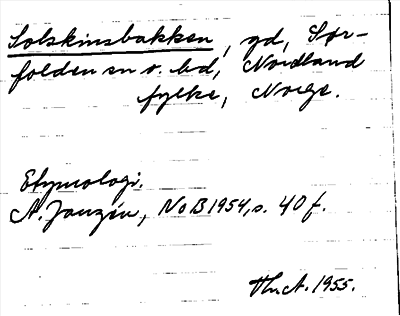 Solskinsbakken, gd, Sør-
folden sn o. hd, Nordland
fylke, Norge.
Etymologi.
A. Janzén, NoB 1954, s. 40 f.
Hn.A. 1955.